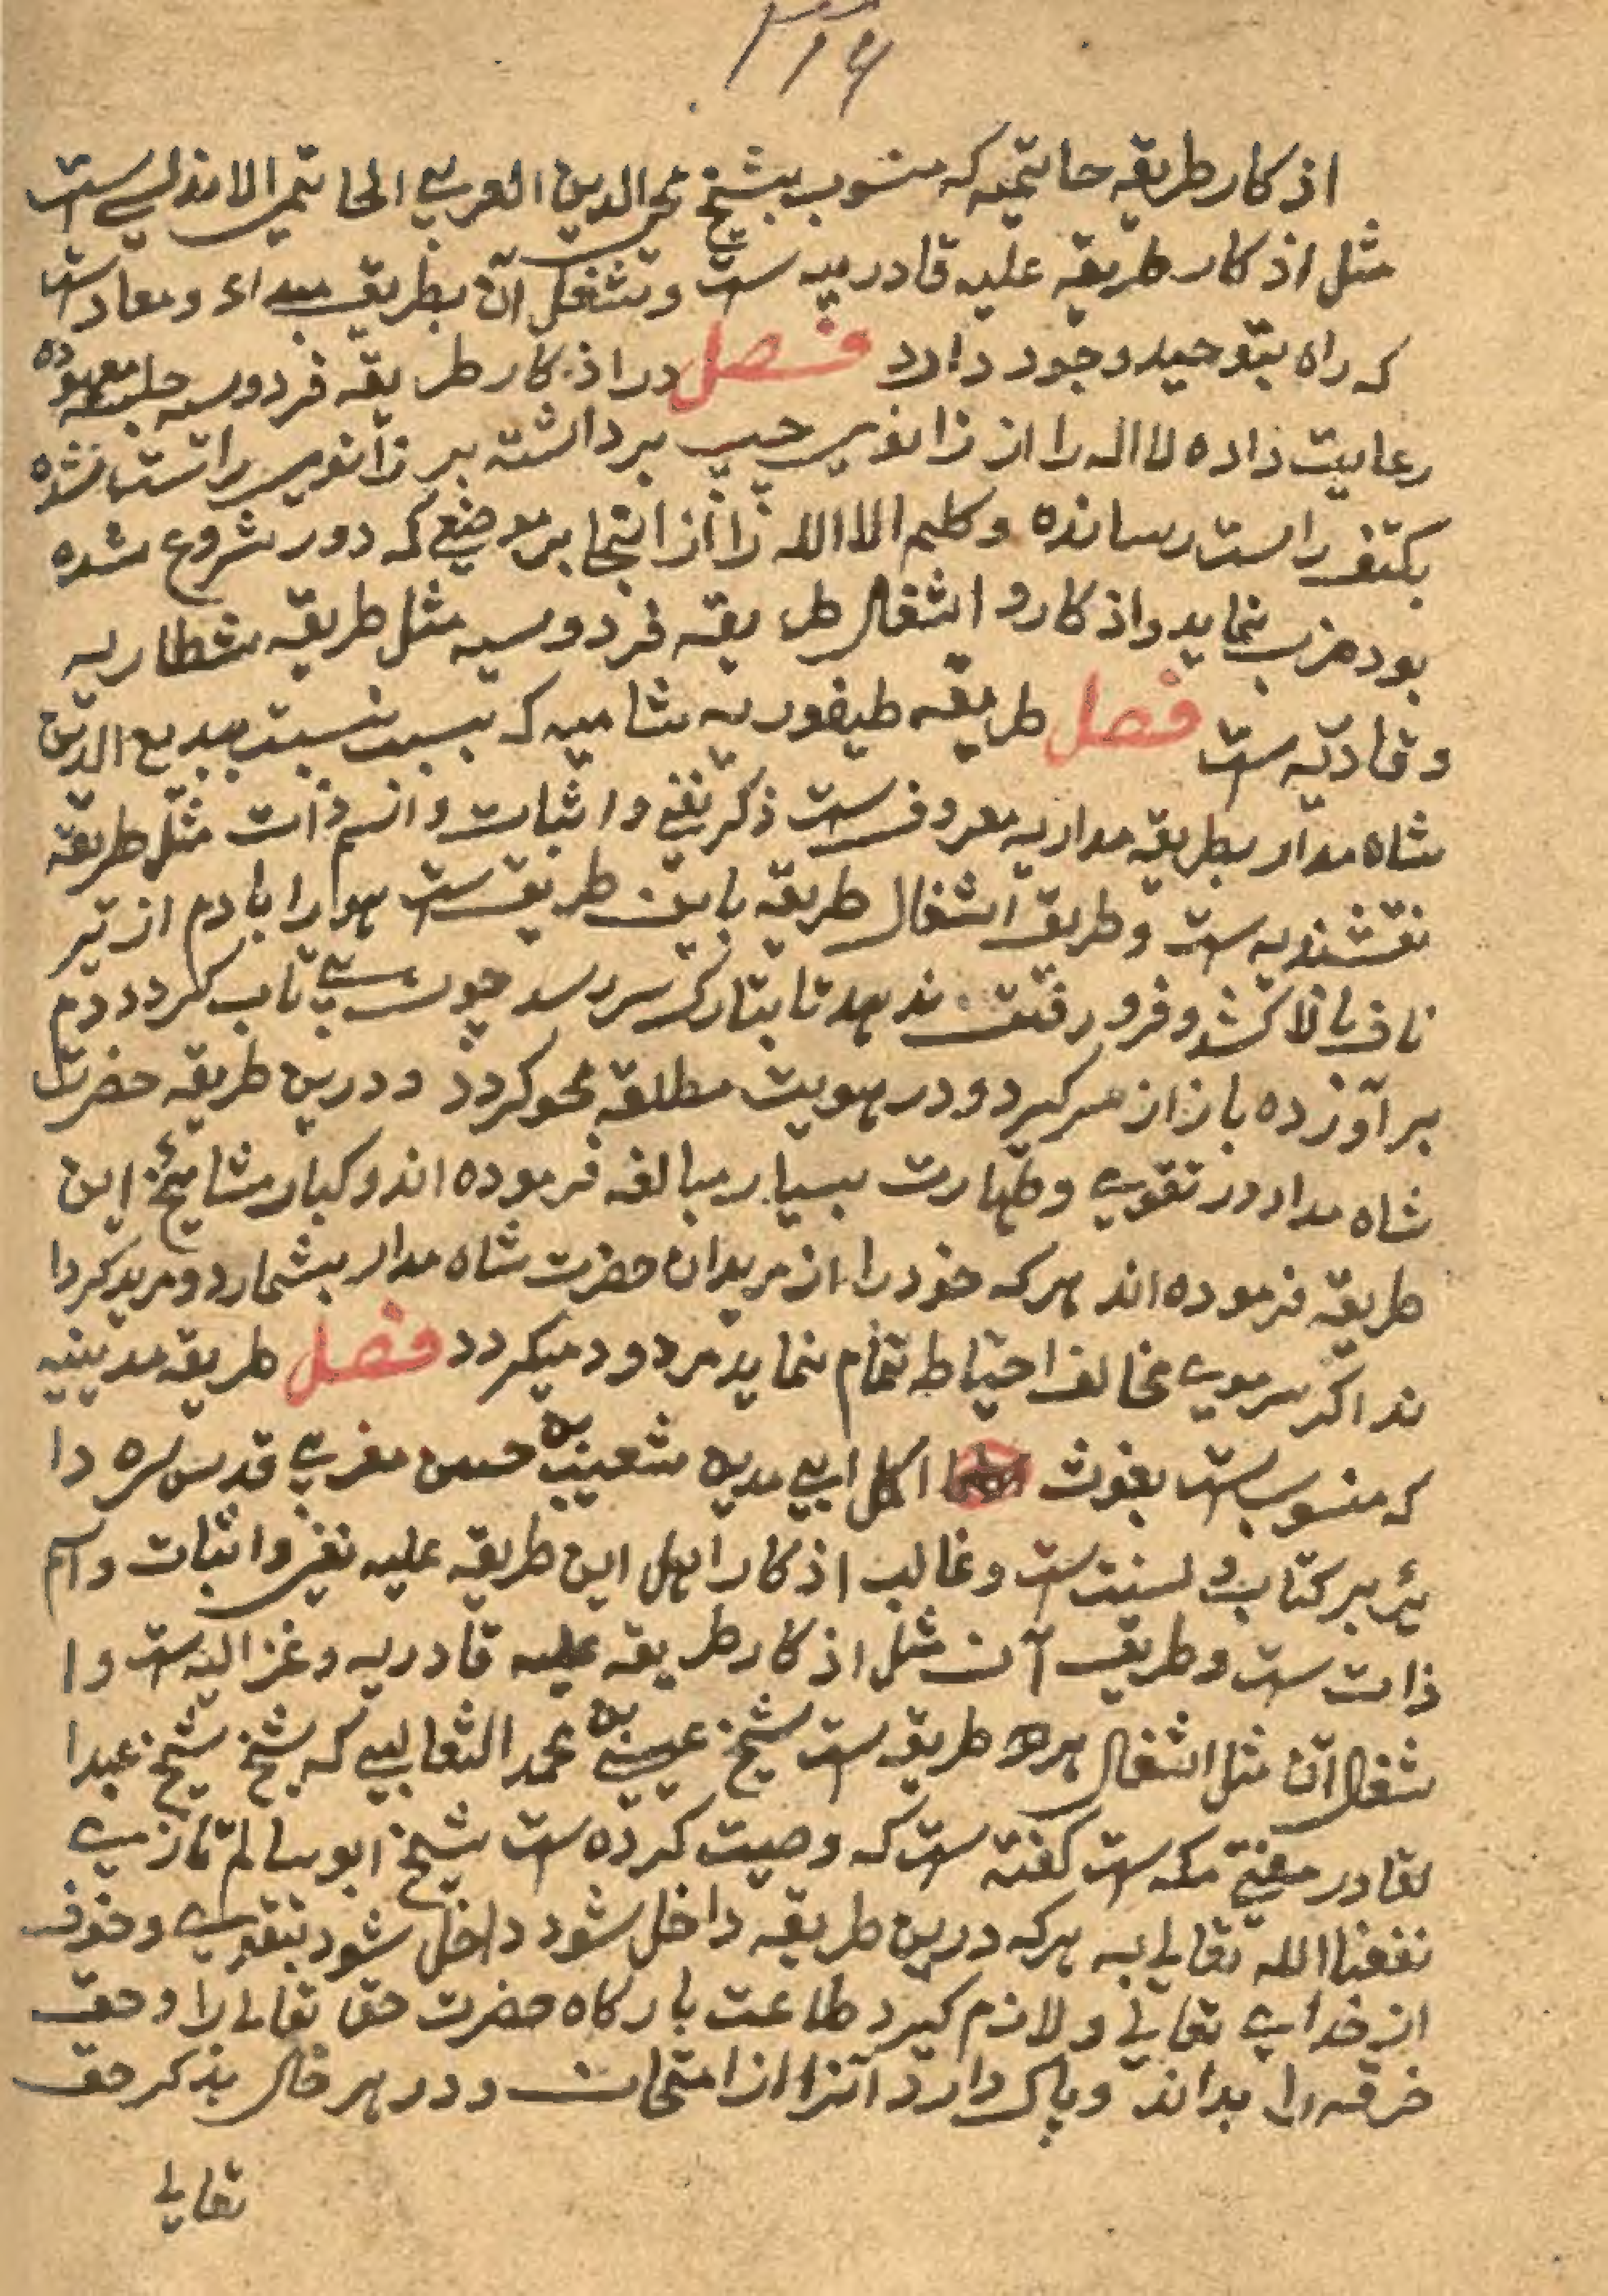 اذکار طریقه حاتمیه که منسوب بشیخ محی الدین العربی الحاتمی الاندلسی ست
مثل اذکار طریقه علیه قادریه ست وشغل آن بطریق مبداء ومعاد ست
که راه بتوحید وجود دارد فصل در اذکار طریقه فردوسیه جلسه معهوده
رعایت داده لا اله را از زانوی چپ برداشته بر زانوی راست
بکتف راست رسانده وکلمه الا الله را از انجا بر موضعی که دور شروع شده
بود ضرب نماید واذکار و اشغال طریقه فردوسیه مثل طریقه شطاریه
وقادریه ست فصل طریقه طیفوریه شامیه که بسبب نسبت ببدیع الدین
شاه مدار بطریقه مداریه معروف ست ذکر نفی واثبات واسم ذات مثل طریقه
نقشبندیه ست وطریق اشغال طریقه باین طریق ست هوا را بادم از تیر
ناف بالا کشد وفرو رفتن ندهد تا بتارک سر رسد چون بی تاب گردد دم
برآورده باز از سر گیرد ودر هویت مطلقه محو گردد ودرین طریقه حضرت
شاه مدار در تقوی وطهارت بسیار مبالغه فرموده اند وکبار مشایخ این
طریقه فرموده اند هرکه خود را از مریدان حضرت شاه مدار بشمارد ومرید کردا
ند اگر سرموی مخالف احتیاط تمام نماید مردود میگردد فصل طریقه مدینیه
که منسوب ست بغوث اکمل ابی مدین شعیب بن حسن مغربی قدس سره دا
ئر بر کتاب و سنت ست وغالب اذکار اهل این طریقه علیه نفی واثبات واسم
ذات ست وطریق آن مثل اذکار طریقه علیه قادریه وغزالیه ست وا
شغال آن مثل اشغال هر دو طریقه ست شیخ عیسی بن محمد الثعالبی که شیخ شیخ عبدا
لقادر مفتی مکه ست گفته ست که وصیت کرده ست شیخ ابو سالم تازی
نفعنا الله تعالی به هرکه درین طریقه داخل شود داخل شود بتقوی وخوف
از خدای تعالی ولازم گیرد طاعت بارگاه حضرت حق تعالی را وحق
خرقه را بداند وپاک دارد آنرا از امتحان ودر هر حال بذکر حق
تعالی